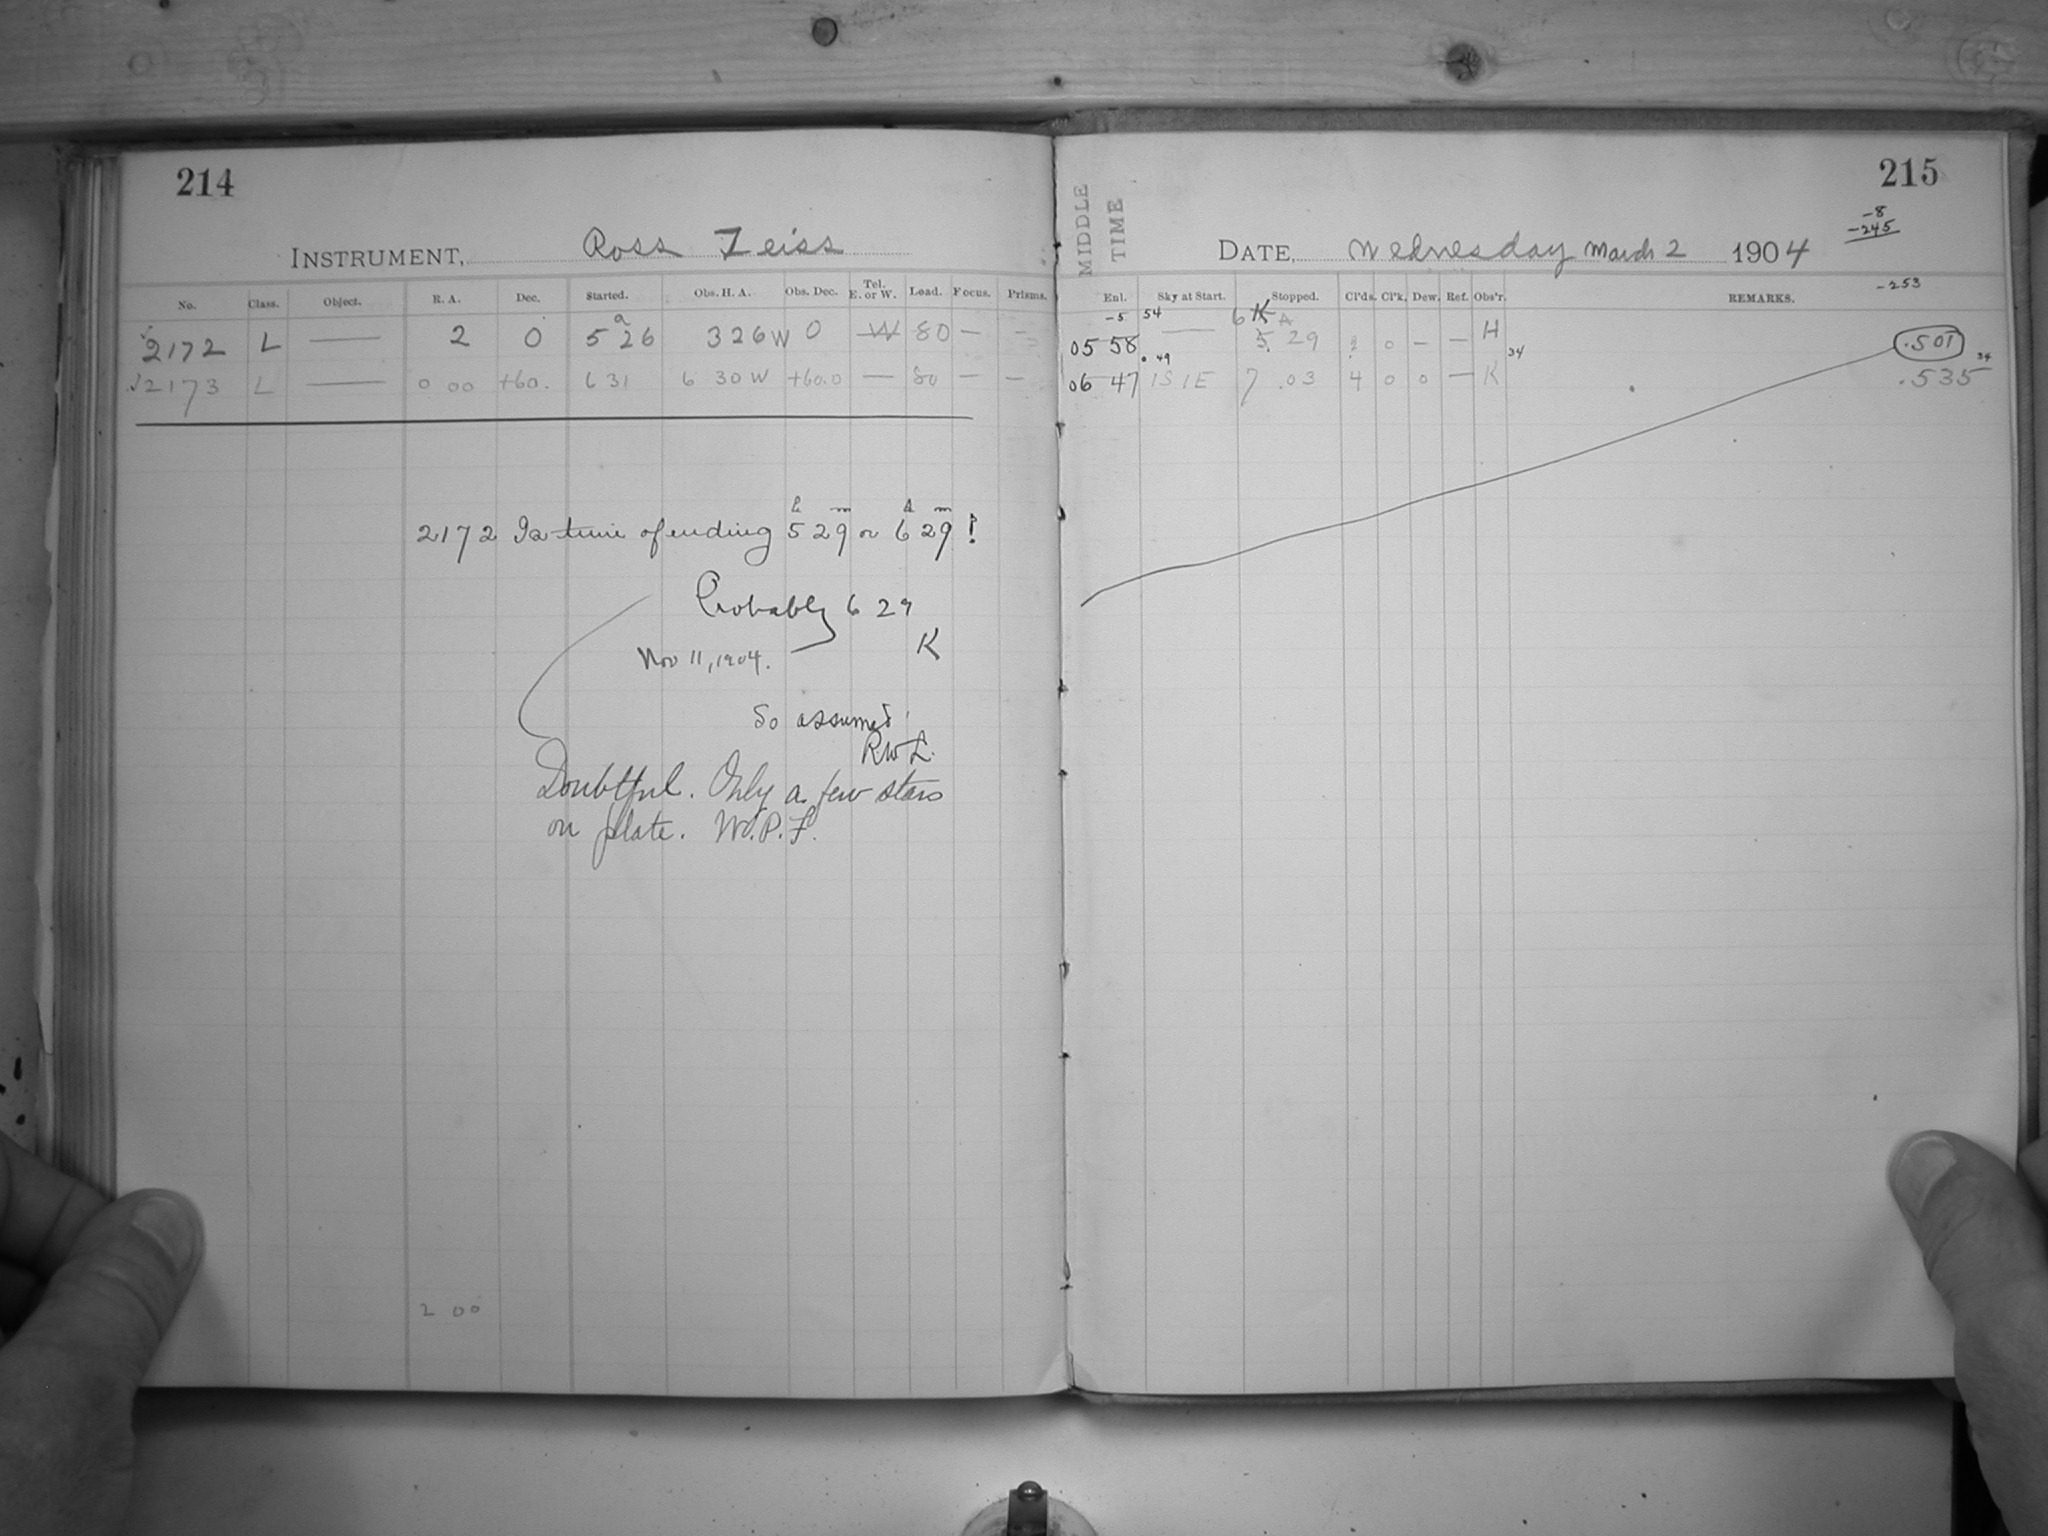 214
INSTRUMENT, Ross Zeiss
No. Class. Object. R. A. Dec. Started. Obs. H. A. Obs. Dec. Tel. E. or W. Load. Focus. Prisms.
2172 L — 2 0 5 26 3 26 W 0 W 80 — —
2173 L — 0 00 +60. 6 31 6 30 W +60.0 — 80 — —
2172 Is time of ending 5h 29m or 6h 29m?
Probably 6 29
K
Nov 11, 1904.
So assumed
R.W.L.
Doubtful. Only a few stars
on plate. W.P.F.
2 00
215
MIDDLE TIME
-8
-245
-253
DATE, Wednesday March 2 1904
Enl. Sky at Start. Stopped. Cl'ds. Cl'k. Dew. Ref. Obs'r. REMARKS.
-5 54 6 K
05 58 — 5 29 0 — — H .501
49 34 34
06 47 1S 1E 7 .03 4 0 0 — K .535